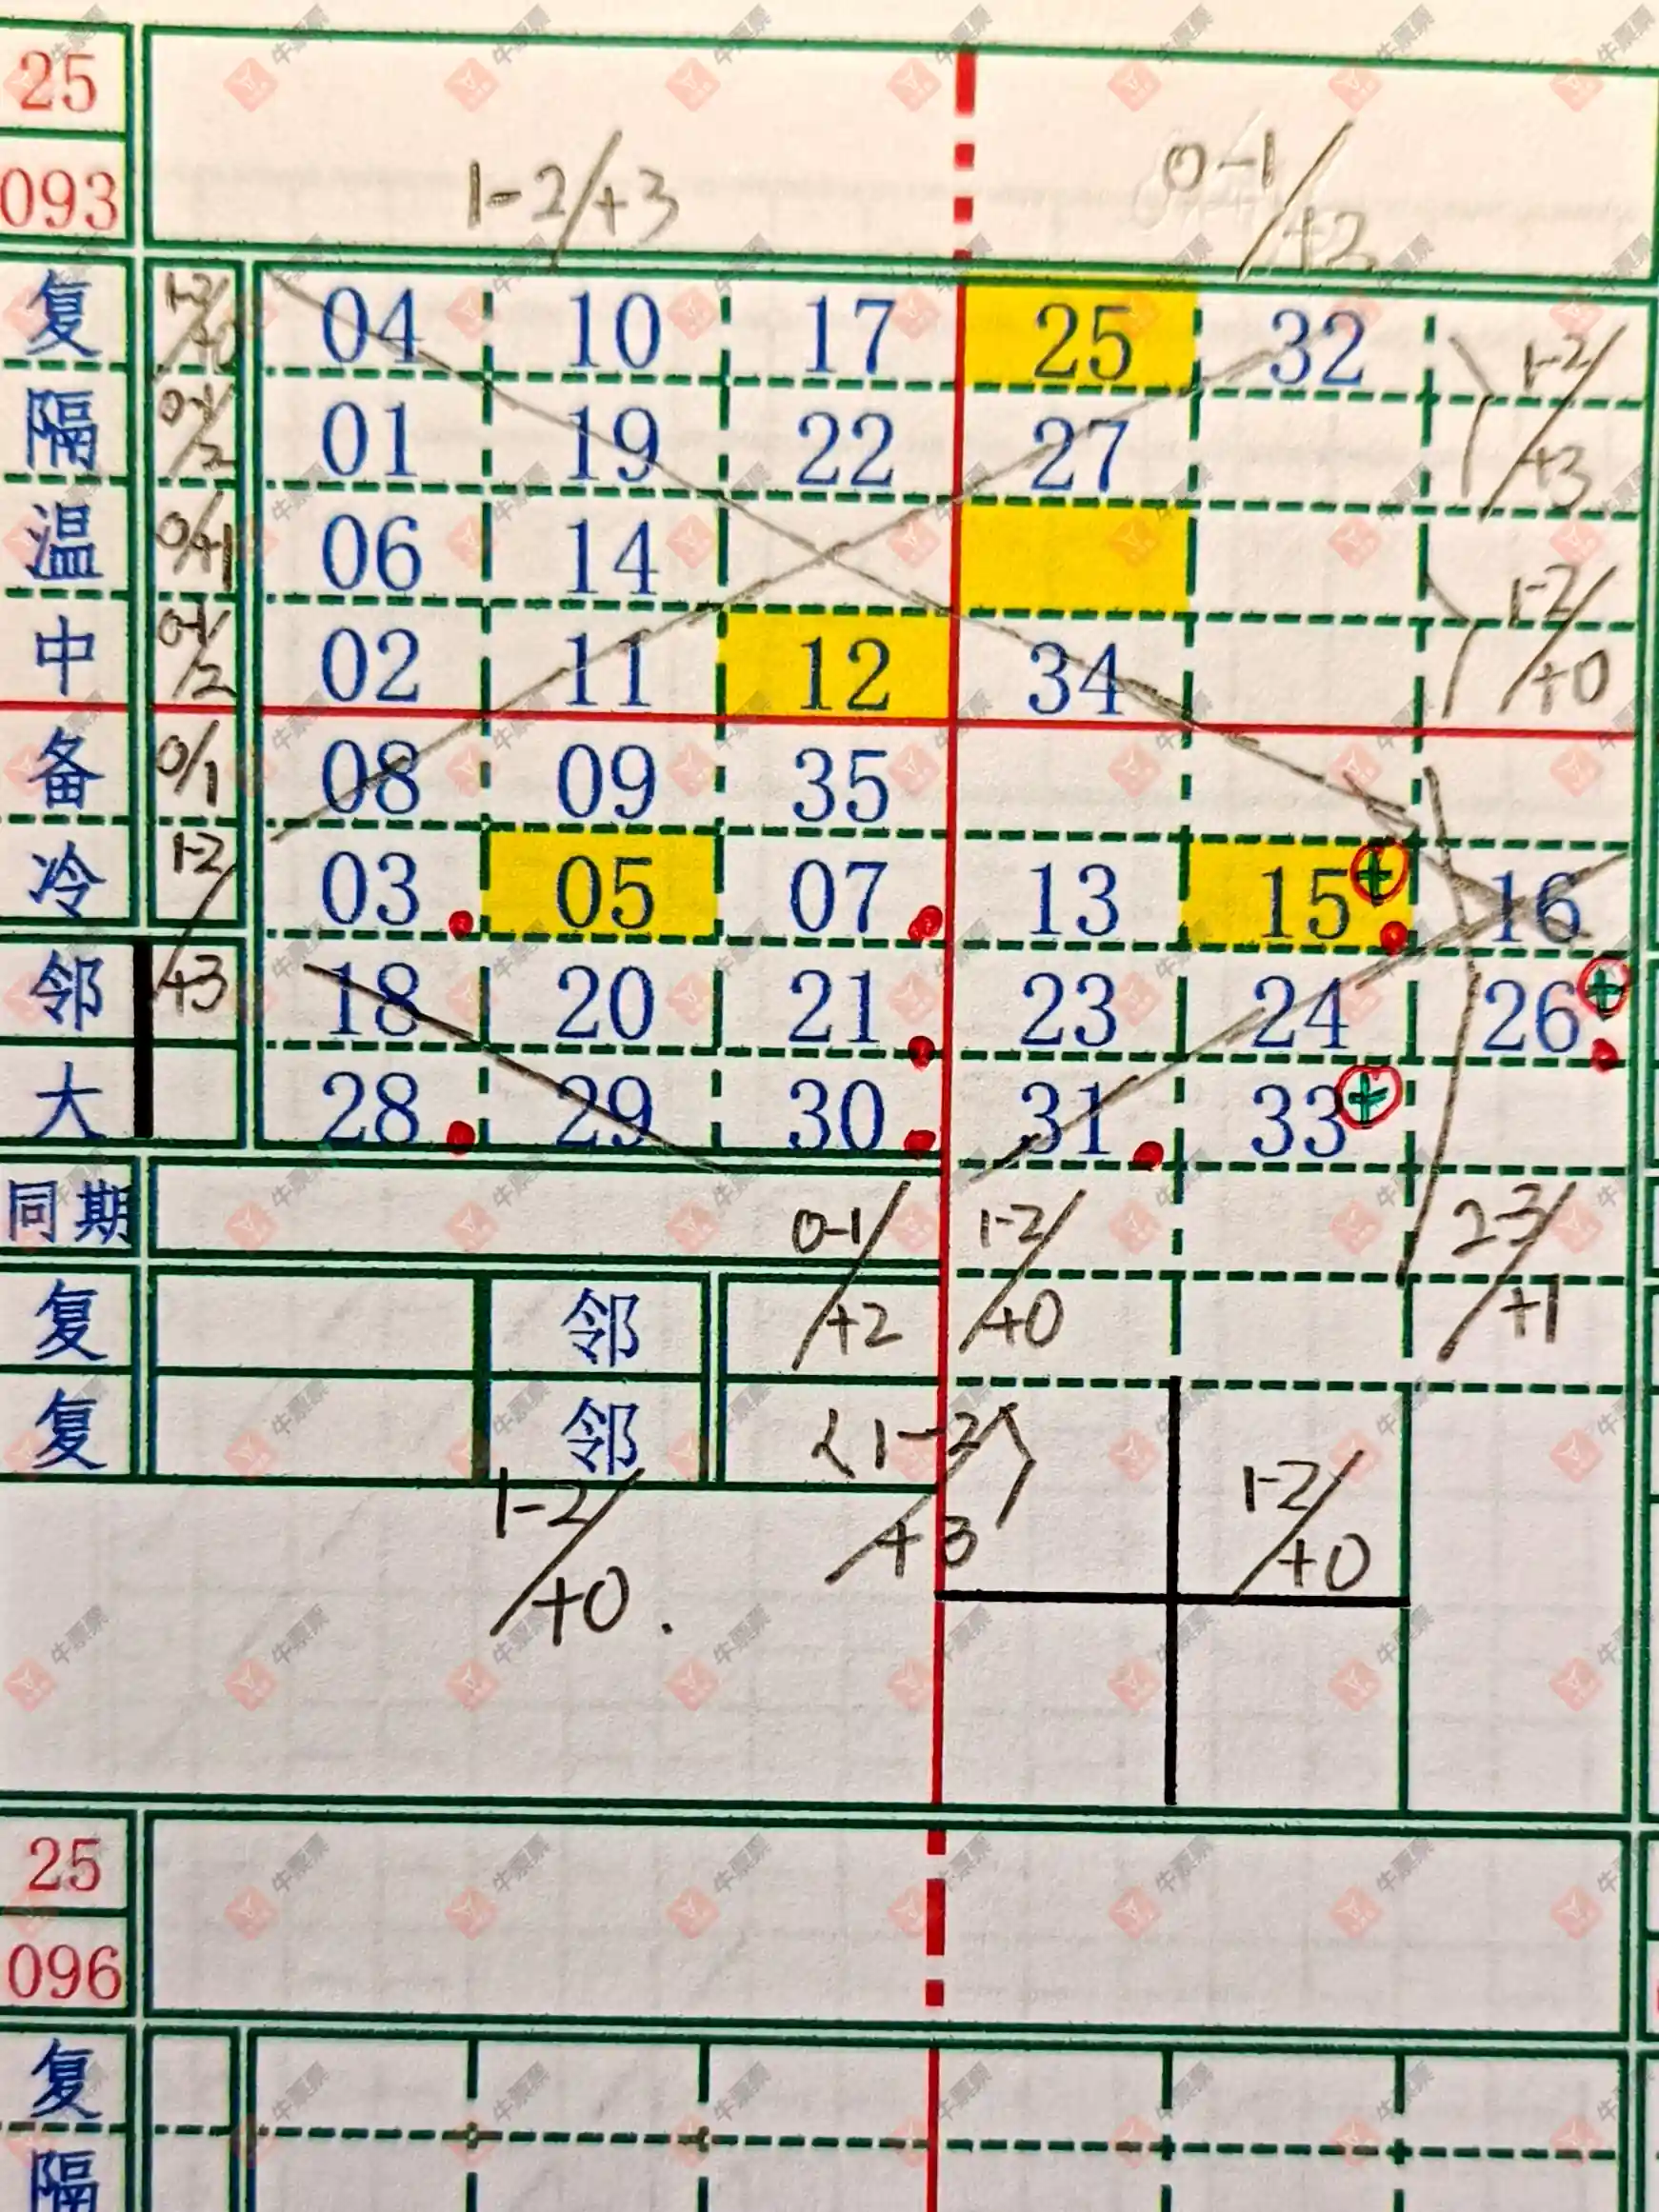 25
093
1-2/+3
0-1/+2
复 1-2/+0 04 10 17 25 32
1-2/+3
隔 0-1/2 01 19 22 27
温 0/+1 06 14
1-2/+0
中 0-1/2 02 11 12 34
备 0/1 08 09 35
冷 1-2/+3 03 05 07 13 15 + 16
邻 18 20 21 23 24 26 +
大 28 29 30 31 33 +
同期
0-1/+2
1-2/+0
2-3/+1
复 邻
复 邻
〈1-2〉/+3
1-2/+0
1-2/+0.
25
096
复
隔
牛票票